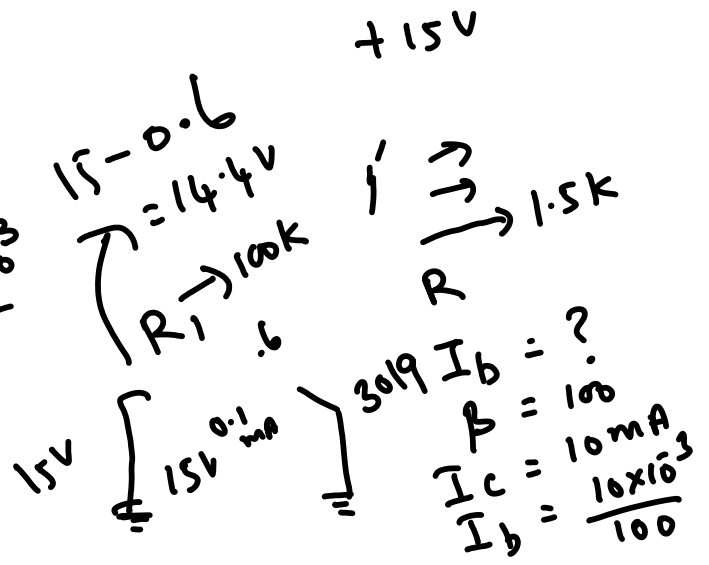 +15V
15-0.6
=14.4V
R1→100K
→1.5K
R
.6
15V
15V
0.1
mA
3019
Ib = ?
β = 100
Ic = 10mA
Ib = 10×10⁻³
100